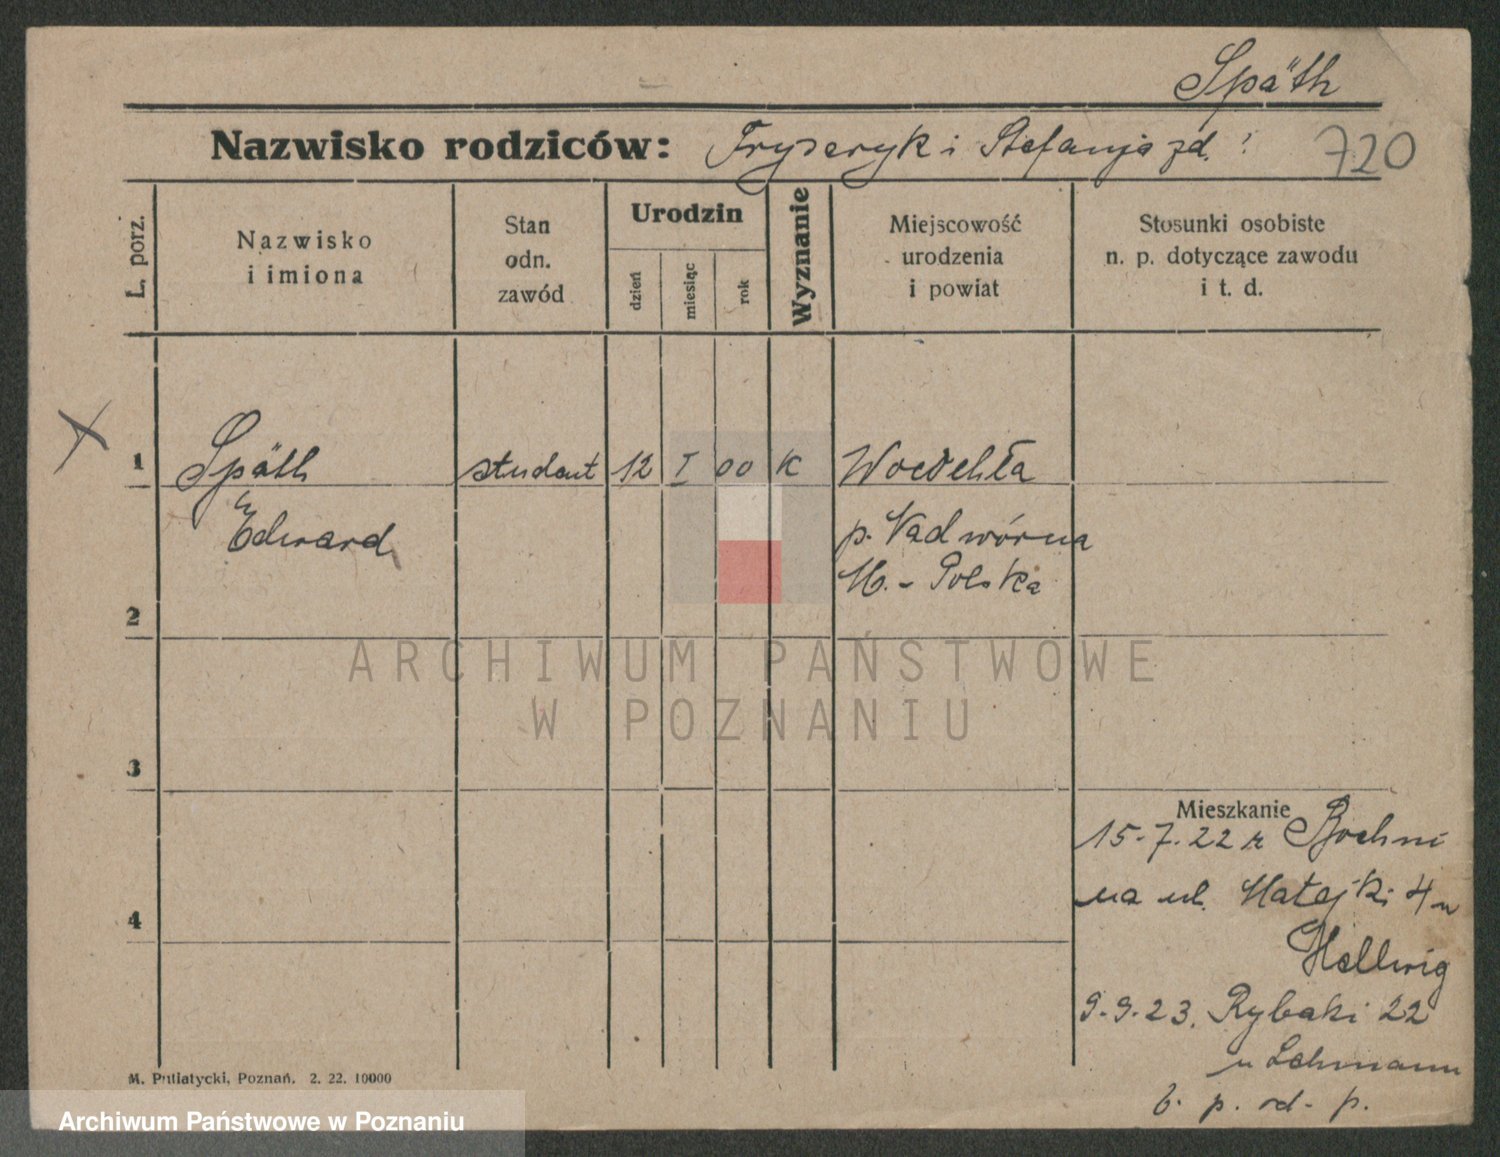 Späth
Nazwisko rodziców: Fryderyk i Stefanja zd. ?
720
L. porz.
Nazwisko
i imiona
Stan
odn.
zawód
Urodzin
dzień
miesiąc
rok
Wyznanie
Miejscowość
urodzenia
i powiat
Stosunki osobiste
n. p. dotyczące zawodu
i t. d.
1 Späth student 12 I 00 K
Edward p. Nadwórna
M. - Polska
2
ARCHIWUM PAŃSTWOWE
W POZNANIU
3
Mieszkanie
15-7.22 z Bochni
na ul. Matejki 4 u
4
Hellwig
9-9-23. Rybaki 22
u Lehmann
b. p. od- p.
M. Putiatycki, Poznań. 2. 22. 10000
Archiwum Państwowe w Poznaniu